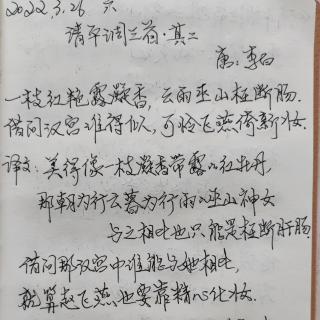 2022.3.26 六
清平调三首·其二
唐:李白
一枝红艳露凝香,云雨巫山枉断肠.
借问汉宫谁得似,可怜飞燕倚新妆.
译文:美得像一枝凝香带露的红牡丹,
那朝为行云暮为行雨的巫山神女
与之相比也只能是枉断肝肠
借问那汉宫中谁能与她相比,
就算赵飞燕也要靠精心化妆.